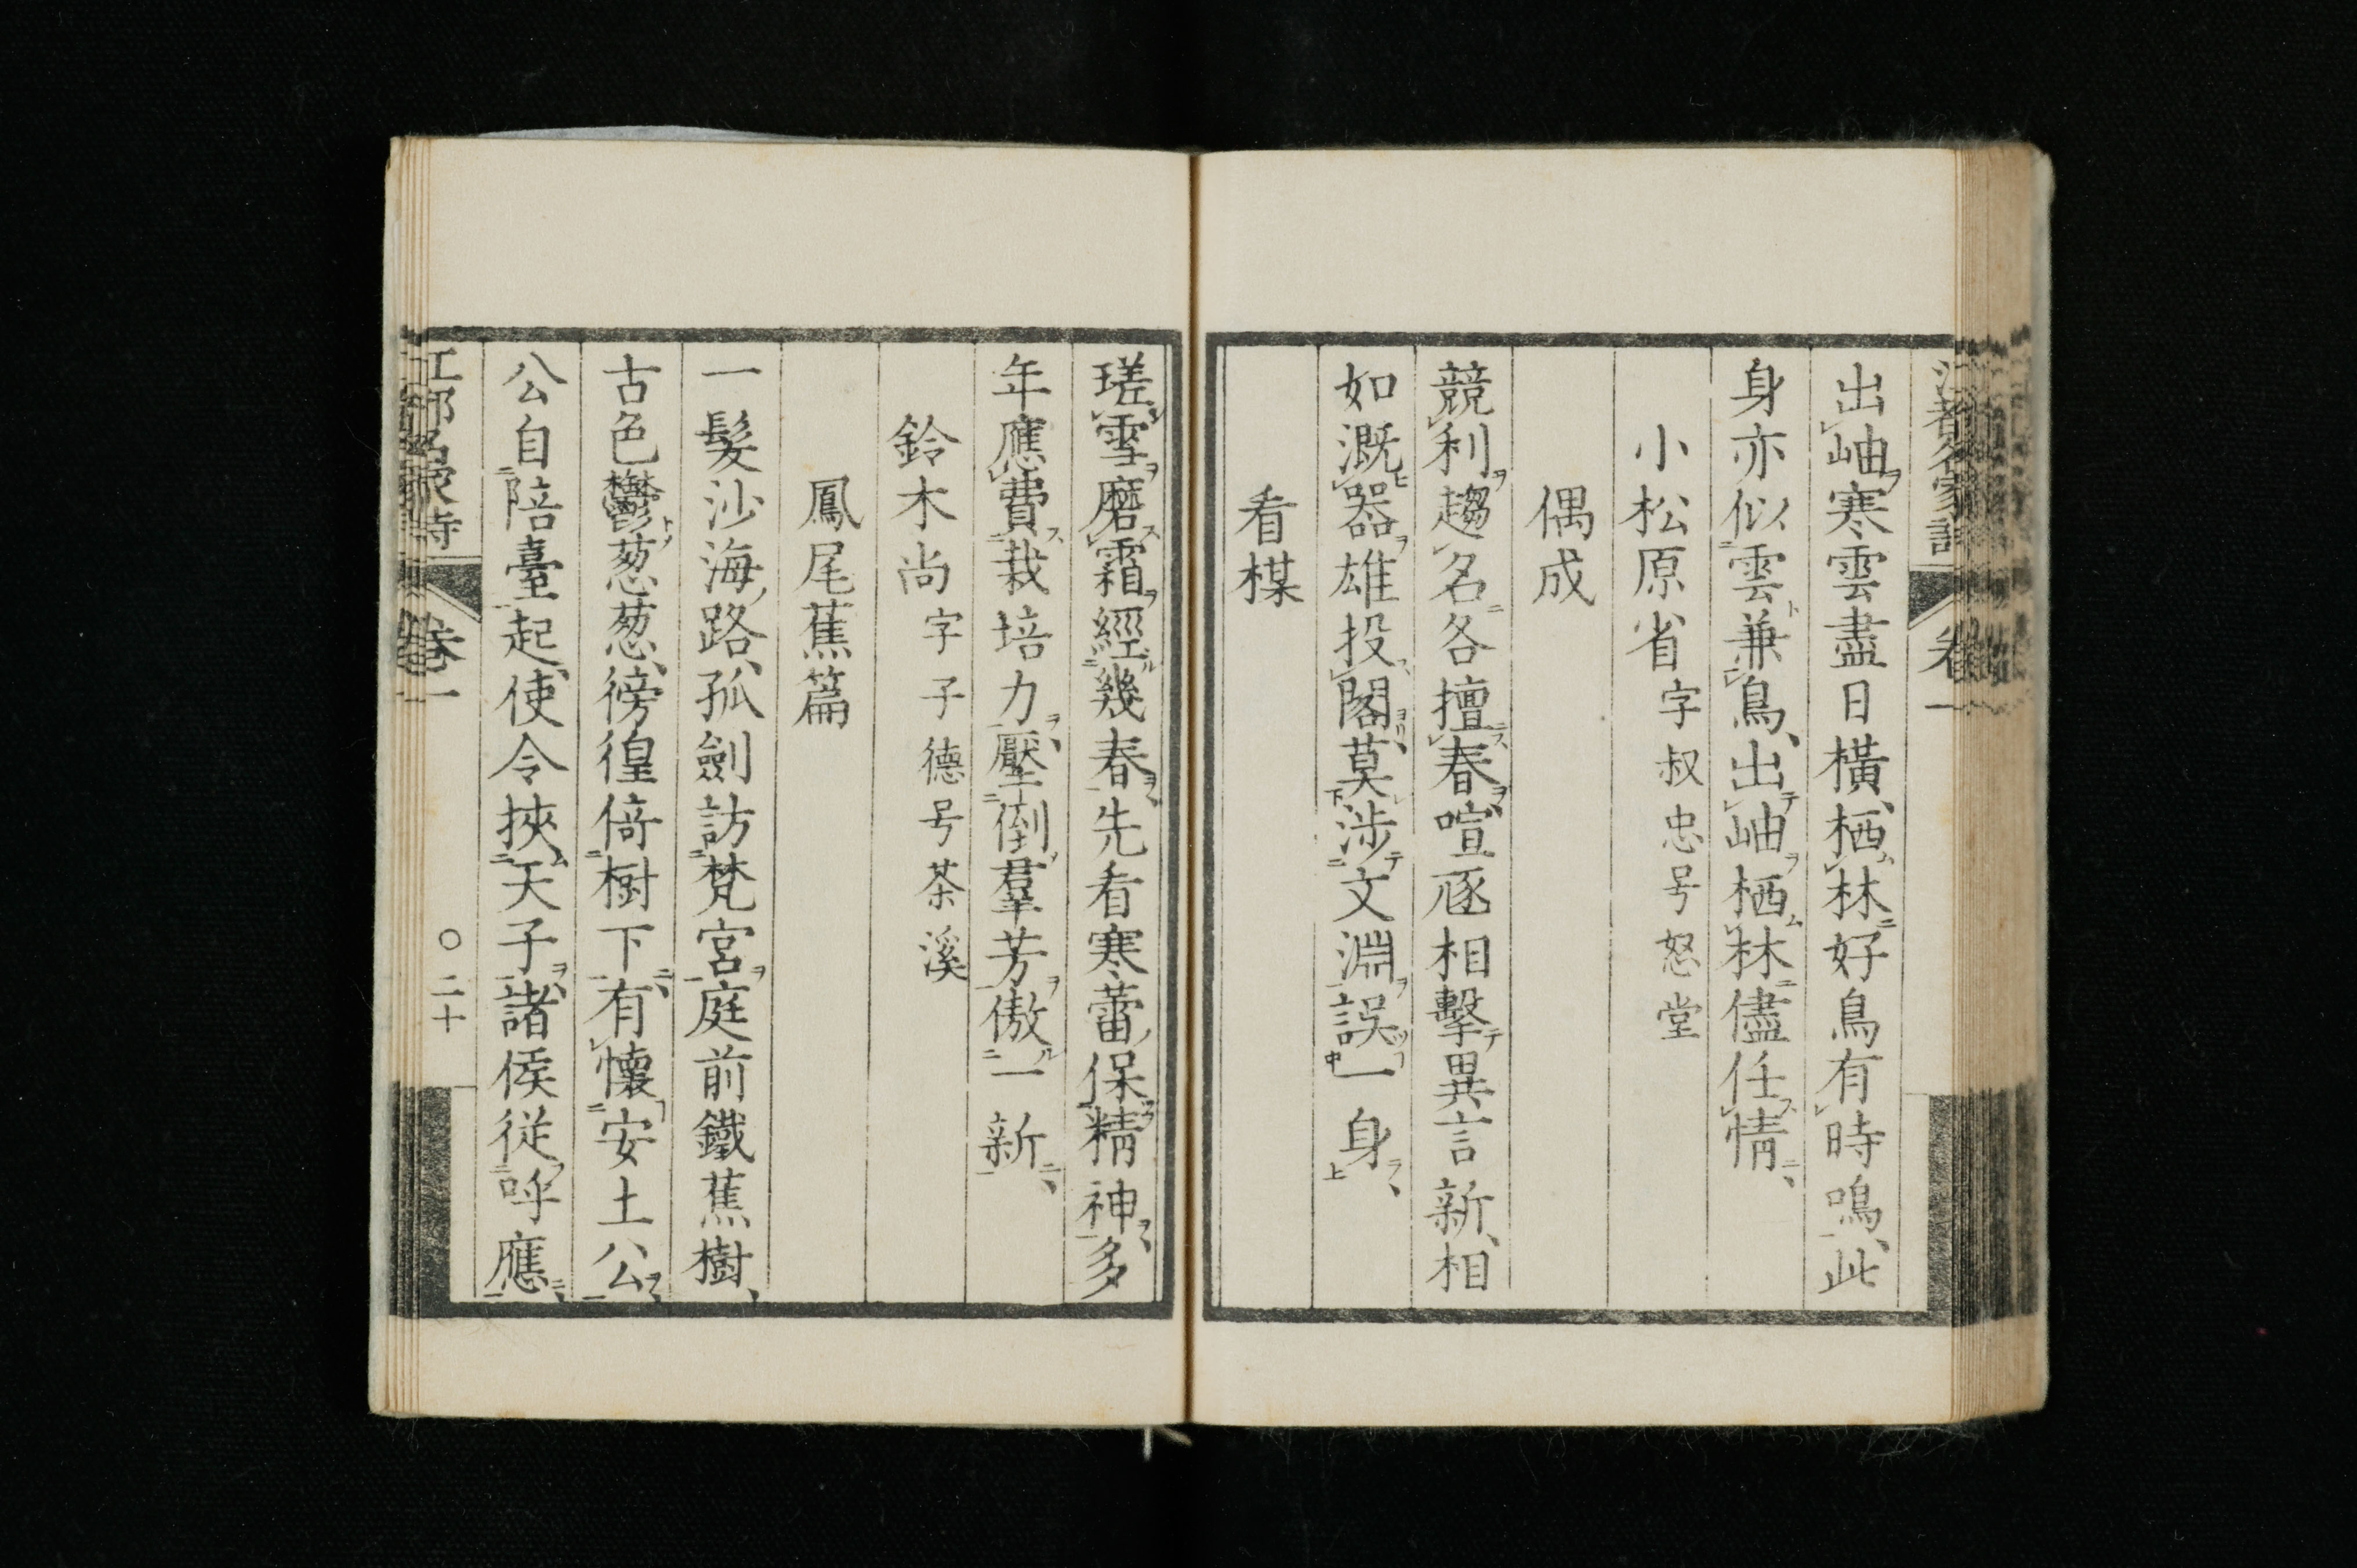 出岫寒雲盡日橫栖林好鳥有時鳴此
身亦似雲兼鳥出岫栖林儘任情
小松原省字叔忠号怒堂
偶成
競利趨名各擅春喧豗相擊異言新相
如溉器雄投閣莫涉文淵誤一身
看楳
瑳雪磨霜經幾春先看寒蕾保精神多
年應費栽培力壓倒羣芳傲一新
鈴木尚字子德号茶溪
鳳尾蕉篇
一髮沙海路孤劍訪梵宮庭前鐵蕉樹
古色鬱葱葱徬徨倚樹下有懷安土公
公自陪臺起使令挾天子諸侯從呼應
卷一
〇二十